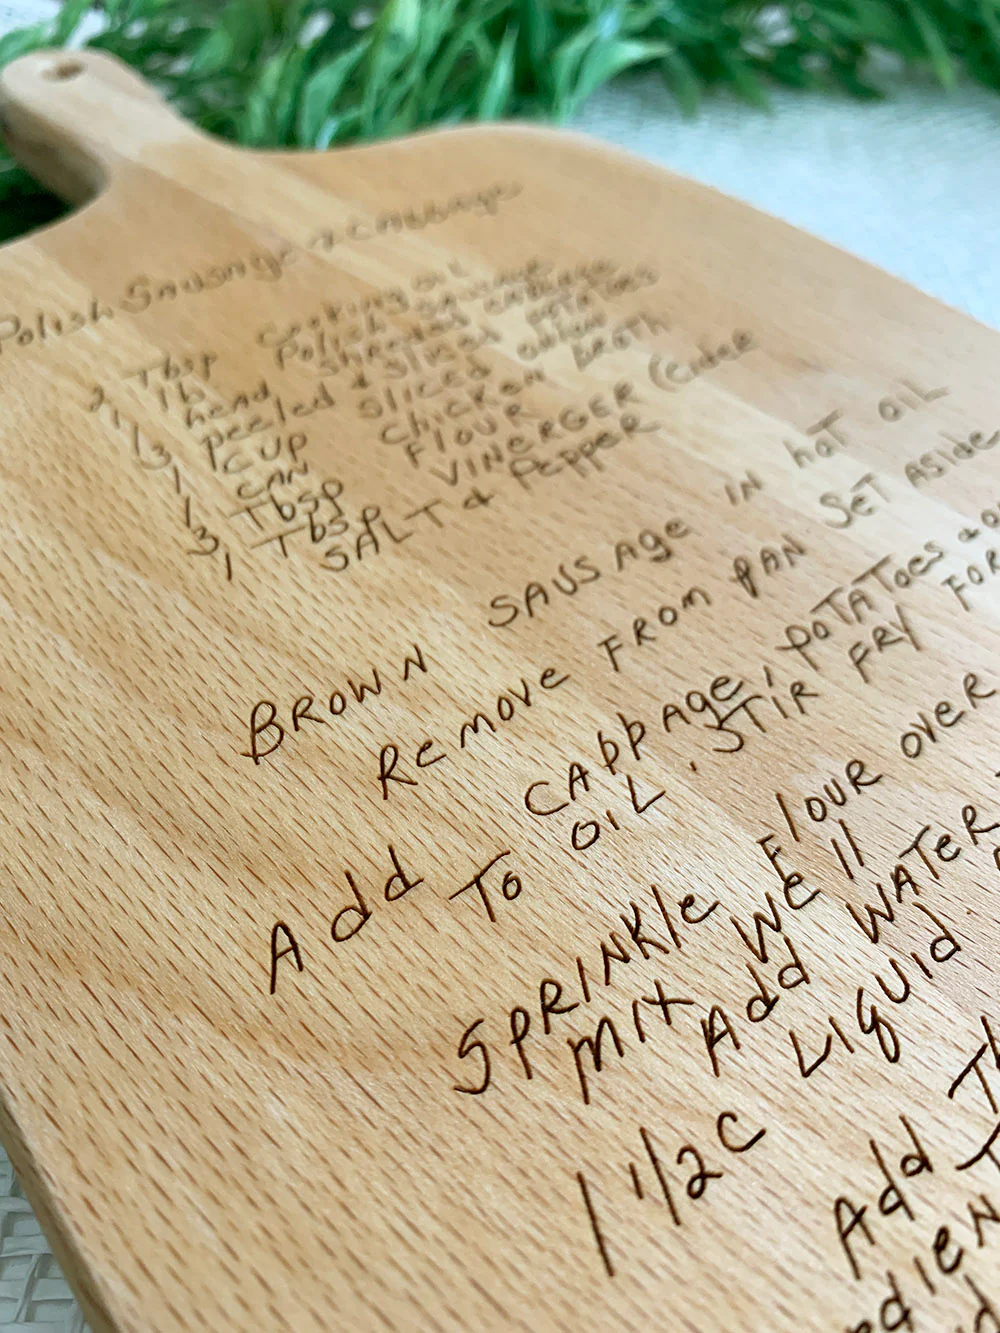 Polish Sausage & Cabbage
2 Tbsp Cooking oil
1 lb Polish Sausage
1 head shredded cabbage
3 peeled & sliced potatoes
1 cup sliced onion
1 can chicken broth
3 Tbsp Flour
1 Tbsp VINERGER (Cider
SALT & Pepper
BROWN SAUSAge IN hoT OIL
Remove FROM PAN SeT ASide
Add CAbbAge, PoTAToes &
To OIL. STIR FRY FOR
SPRINKle Flour over
MIX We ll
Add WATeR
LIQUId
1 1/2 C
Add